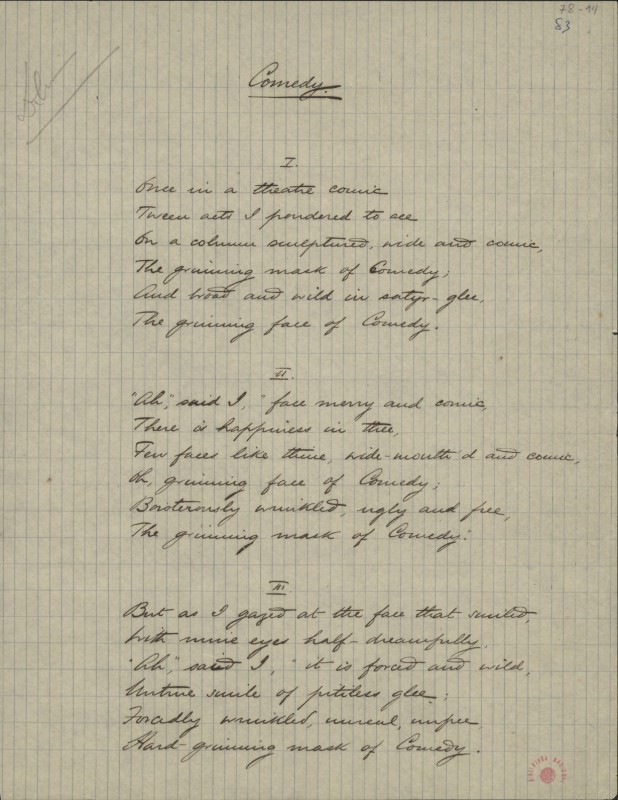 78-44
83
Comedy.
I.
Once in a theatre comic
Tween acts I pondered to see
On a column sculptured, wide and comic,
The grinning mask of Comedy;
And broad and wild in satyr-glee,
The grinning face of Comedy.
II.
"Ah", said I, "face merry and comic,
There is happiness in thee,
Few faces like thine, wide-mouth'd and comic,
Oh, grinning face of Comedy;
Boisterously wrinkled, ugly and free,
The grinning mask of Comedy."
III.
But as I gazed at the face that smiled,
With mine eyes half-dreamfully,
"Ah", said I, "it is forced and wild,
Untrue smile of pitiless glee;
Forcedly wrinkled, unreal, unfree,
Hard-grinning mask of Comedy.